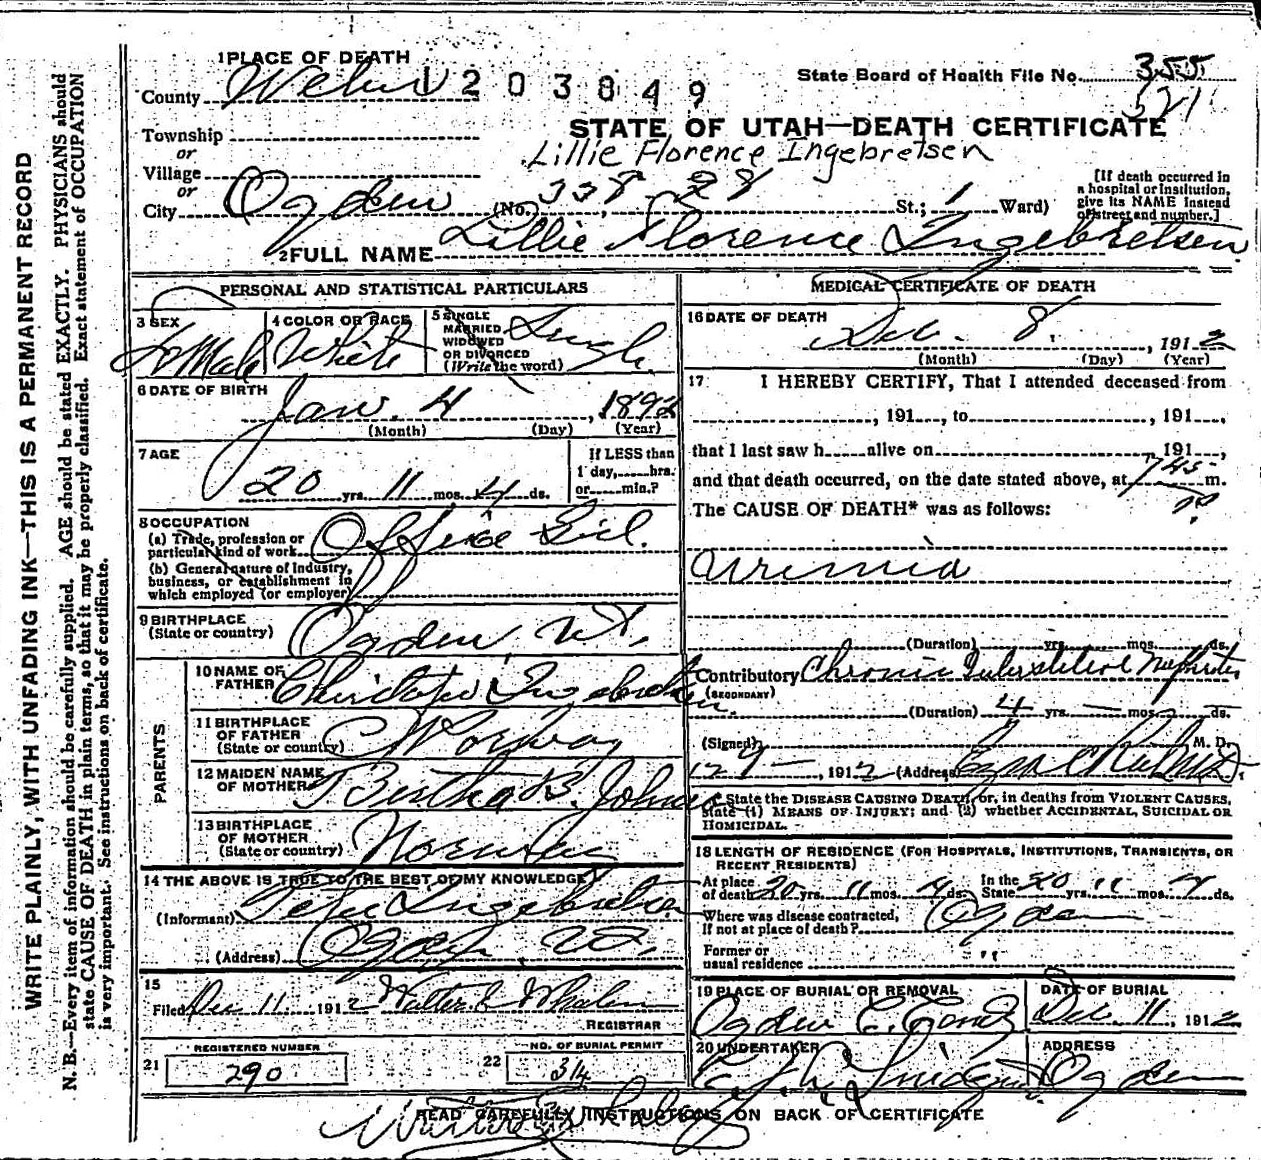 WRITE PLAINLY, WITH UNFADING INK—THIS IS A PERMANENT RECORD
N. B.—Every item of information should be carefully supplied. AGE should be stated EXACTLY. PHYSICIANS should
state CAUSE OF DEATH in plain terms, so that it may be properly classified. Exact statement of OCCUPATION
is very important. See instructions on back of certificate.
1 PLACE OF DEATH
County Weber
1203849
State Board of Health File No. 355
521
STATE OF UTAH—DEATH CERTIFICATE
Lillie Florence Ingebretsen
Township
or
Village
or
City Ogden (No. 338 - 28 St.; 1 Ward)
[If death occurred in
a hospital or institution,
give its NAME instead
of street and number.]
2 FULL NAME Lillie Florence Ingebretsen
PERSONAL AND STATISTICAL PARTICULARS
3 SEX
FeMale
4 COLOR OR RACE
White
5 SINGLE
MARRIED
WIDOWED
OR DIVORCED
(Write the word)
Single
6 DATE OF BIRTH
Jan. 4, 1892
(Month) (Day) (Year)
7 AGE
20 yrs. 11 mos. 4 ds.
If LESS than
1 day, hrs.
or min.?
8 OCCUPATION
(a) Trade, profession or
particular kind of work Office Girl.
(b) General nature of Industry,
business, or establishment in
which employed (or employer)
9 BIRTHPLACE
(State or country) Ogden, Ut.
PARENTS
10 NAME OF
FATHER Ingebretsen.
11 BIRTHPLACE
OF FATHER
(State or country) Norway
12 MAIDEN NAME
OF MOTHER Bertha B.
13 BIRTHPLACE
OF MOTHER
(State or country) Norway
14 THE ABOVE IS TRUE TO THE BEST OF MY KNOWLEDGE
(Informant) Ingebretsen
(Address) Ogden, Ut.
15
Filed Dec 11 1912 Walter
REGISTRAR
REGISTERED NUMBER
21 290
NO. OF BURIAL PERMIT
22 314
MEDICAL CERTIFICATE OF DEATH
16 DATE OF DEATH
Dec. 8, 1912
(Month) (Day) (Year)
17 I HEREBY CERTIFY, That I attended deceased from
, 191 , to , 191 ,
that I last saw h alive on 191 ,
and that death occurred, on the date stated above, at 7 45 m.
The CAUSE OF DEATH* was as follows:
Uremia
(Duration) yrs. mos. ds.
Contributory Chronic Interstitial Nephritis
(SECONDARY)
(Duration) 4 yrs. — mos. — ds.
(Signed) M. D.
12 9 — , 1912 (Address) Ezra C Rich
* State the DISEASE CAUSING DEATH, or, in deaths from VIOLENT CAUSES,
state (1) MEANS OF INJURY; and (2) whether ACCIDENTAL, SUICIDAL OR
HOMICIDAL.
18 LENGTH OF RESIDENCE (FOR HOSPITALS, INSTITUTIONS, TRANSIENTS, OR
RECENT RESIDENTS)
At place
of death 20 yrs. 11 mos. 4 ds.
In the
State 20 yrs. 11 mos. 4 ds.
Where was disease contracted,
If not at place of death? Ogden
Former or
usual residence "
19 PLACE OF BURIAL OR REMOVAL
Ogden
DATE OF BURIAL
Dec. 11, 1912
20 UNDERTAKER
ADDRESS
Ogden
READ CAREFULLY INSTRUCTIONS ON BACK OF CERTIFICATE